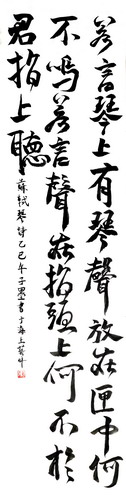 若言琴上有琴聲放在匣中何
不鳴若言聲在指頭上何不於
君指上聽
蘇軾琴詩乙巳年子墨書于海上蓺竹